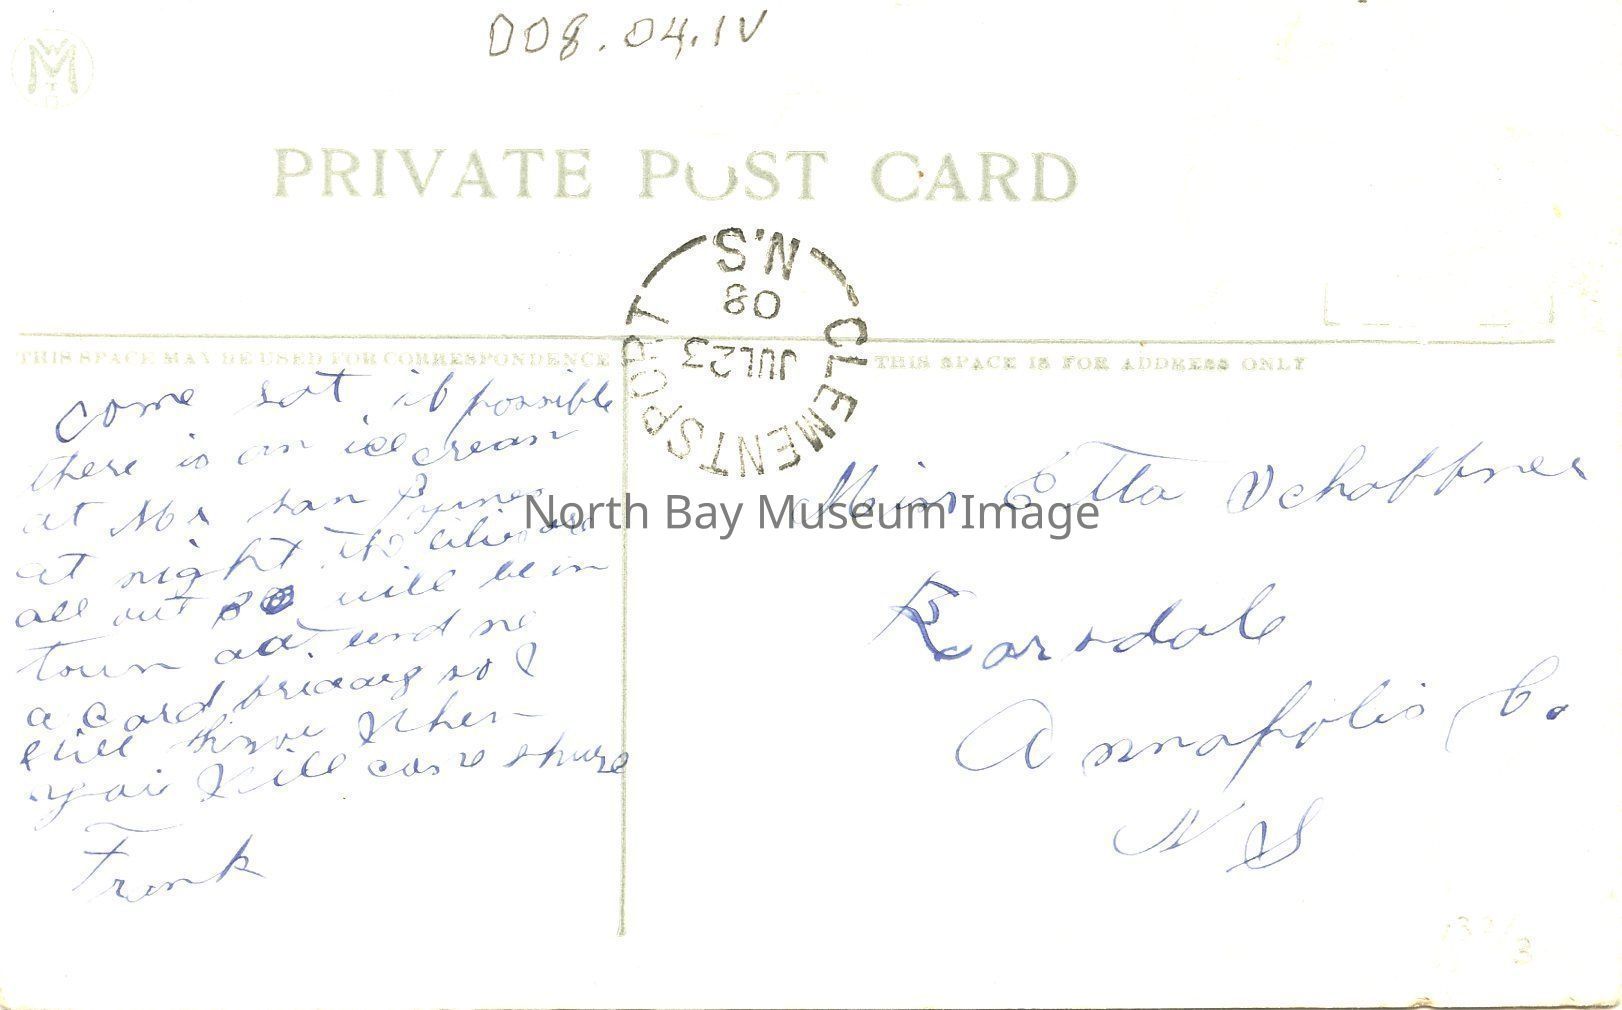 008.04.IV
PRIVATE POST CARD
CLEMENTSPORT
N.S
08
JUL 23
THIS SPACE MAY BE USED FOR CORRESPONDENCE
THIS SPACE IS FOR ADDRESS ONLY
Come sat. if possible
there is an ice cream
at Mr san
at night. the
all out so will be in
town send me
a card so I
will know when
you will come shure
Frank
Miss Etta Schaffner
Karsdale
Annapolis Co.
N S
North Bay Museum Image